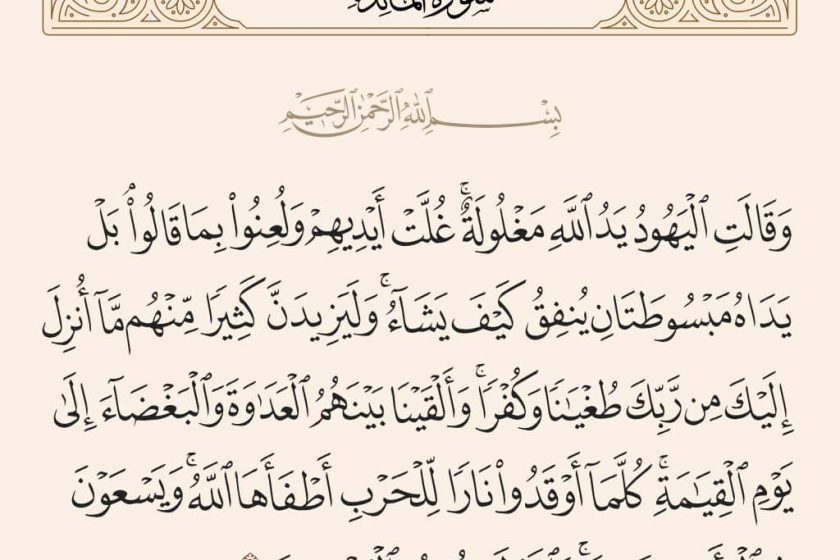 سورة المائدة
بِسْمِ ٱللَّهِ ٱلرَّحْمَٰنِ ٱلرَّحِيمِ
وَقَالَتِ ٱلْيَهُودُ يَدُ ٱللَّهِ مَغْلُولَةٌۚ غُلَّتْ أَيْدِيهِمْ وَلُعِنُوا۟ بِمَا قَالُوا۟ۘ بَلْ
يَدَاهُ مَبْسُوطَتَانِ يُنفِقُ كَيْفَ يَشَآءُۚ وَلَيَزِيدَنَّ كَثِيرًا مِّنْهُم مَّآ أُنزِلَ
إِلَيْكَ مِن رَّبِّكَ طُغْيَٰنًا وَكُفْرًاۚ وَأَلْقَيْنَا بَيْنَهُمُ ٱلْعَدَٰوَةَ وَٱلْبَغْضَآءَ إِلَىٰ
يَوْمِ ٱلْقِيَٰمَةِۚ كُلَّمَآ أَوْقَدُوا۟ نَارًا لِّلْحَرْبِ أَطْفَأَهَا ٱللَّهُۚ وَيَسْعَوْنَ